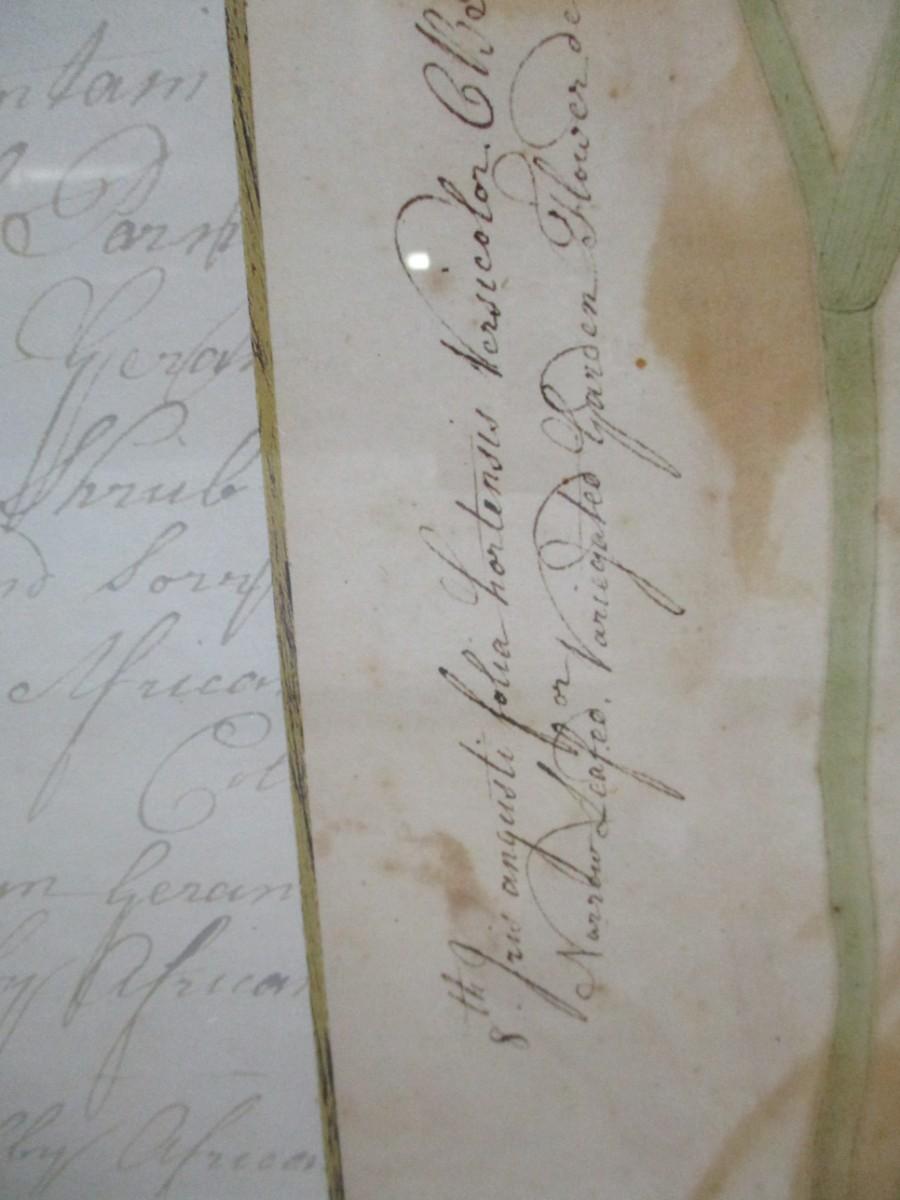 ntam
Parn
Geran
Shrub
nd Sorry
African
Cot
m Geran
by African
by African
8th Iris angusti folia hortensis Versicolor. Clus
Narrow Leafed. or Variegated Garden Flower de